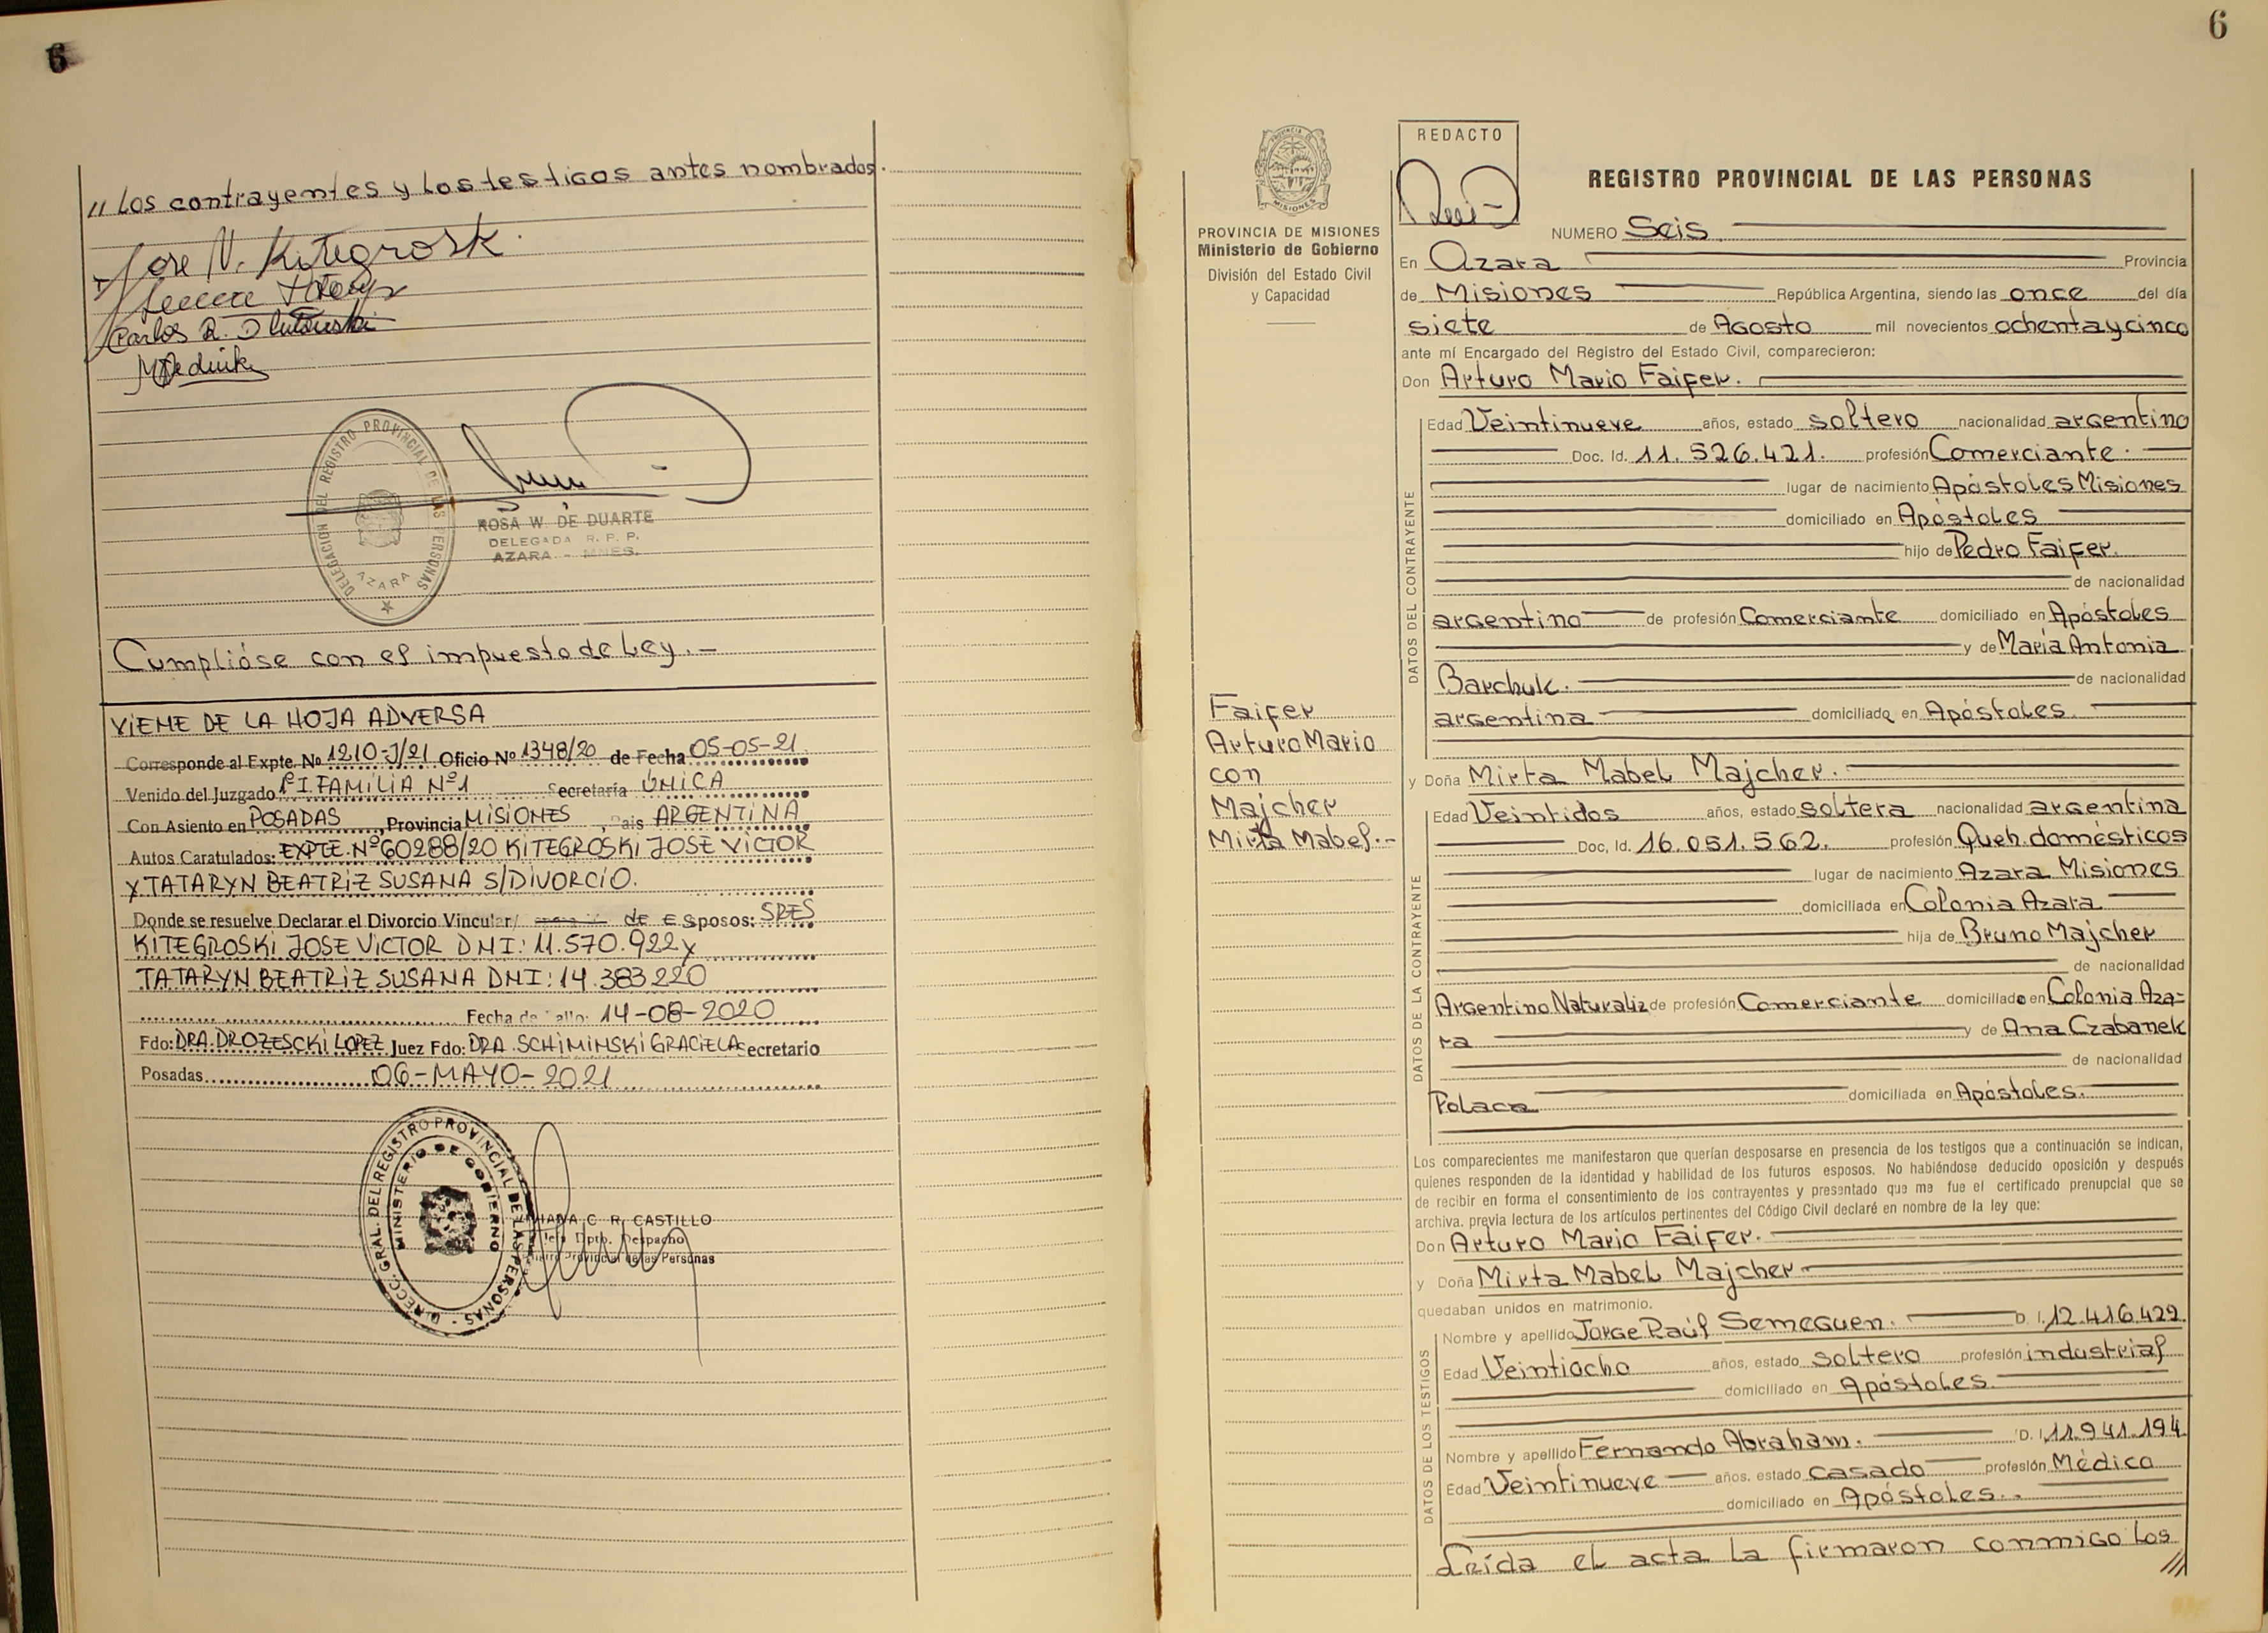 6
// Los contrayentes y los testigos antes nombrados.
Jose V. Kitegrosk
Carlos R.
DELEGACION DEL REGISTRO PROVINCIAL DE LAS PERSONAS
AZARA
ROSA W. DE DUARTE
DELEGADA R. P. P.
AZARA - MNES.
Cumplióse con el impuesto de Ley.-
VIENE DE LA HOJA ADVERSA
Corresponde al Expte. Nº 1210-J/21 Oficio Nº 1348/20 de Fecha 05-05-21
Venido del Juzgado 1º I. FAMILIA Nº1 Secretaría ÚNICA
Con Asiento en POSADAS, Provincia MISIONES, Pais ARGENTINA
Autos Caratulados: EXPTE. Nº 60288/20 KITEGROSKI JOSE VICTOR
Y TATARYN BEATRIZ SUSANA S/DIVORCIO.
Donde se resuelve Declarar el Divorcio Vincular/ DE Esposos: SRES
KITEGROSKI JOSE VICTOR DNI: 11.570.922 y
TATARYN BEATRIZ SUSANA DNI: 14.383.220
Fecha de Fallo: 14-08-2020
Fdo: DRA. DROZESCKI LOPEZ Juez Fdo: DRA. SCHIMINSKI GRACIELA Secretario
Posadas 06-MAYO-2021
DIRECC. GRAL. DEL REGISTRO PROVINCIAL DE LAS PERSONAS
MINISTERIO DE GOBIERNO
C. R. CASTILLO
Dpto. Despacho
Provincial de las Personas
6
PROVINCIA DE MISIONES
Ministerio de Gobierno
División del Estado Civil
y Capacidad
Faifer
Arturo Mario
con
Majcher
Mirta Mabel.-
REDACTO
REGISTRO PROVINCIAL DE LAS PERSONAS
NUMERO Seis
En Azara Provincia
de Misiones República Argentina, siendo las once del día
siete de Agosto mil novecientos ochenta y cinco
ante mí Encargado del Registro del Estado Civil, comparecieron:
Don Arturo Mario Faifer.
DATOS DEL CONTRAYENTE
Edad Veintinueve años, estado soltero nacionalidad argentino
Doc. Id. 11.526.421. profesión Comerciante.
lugar de nacimiento Apóstoles Misiones
domiciliado en Apóstoles
hijo de Pedro Faifer.
de nacionalidad
argentino de profesión Comerciante domiciliado en Apóstoles
y de María Antonia
Barchuk. de nacionalidad
argentina domiciliado en Apóstoles.
y Doña Mirta Mabel Majcher.
DATOS DE LA CONTRAYENTE
Edad Veintidos años, estado soltera nacionalidad argentina
Doc. Id. 16.051.562. profesión Queh. domésticos
lugar de nacimiento Azara Misiones
domiciliada en Colonia Azara
hija de Bruno Majcher
de nacionalidad
Argentino Naturaliz de profesión Comerciante domiciliado en Colonia Aza=
ra y de Ana Czabanek
de nacionalidad
Polaca domiciliada en Apóstoles.
Los comparecientes me manifestaron que querían desposarse en presencia de los testigos que a continuación se indican,
quienes responden de la identidad y habilidad de los futuros esposos. No habiéndose deducido oposición y después
de recibir en forma el consentimiento de los contrayentes y presentado que me fue el certificado prenupcial que se
archiva. previa lectura de los artículos pertinentes del Código Civil declaré en nombre de la ley que:
Don Arturo Mario Faifer.
y Doña Mirta Mabel Majcher
quedaban unidos en matrimonio.
DATOS DE LOS TESTIGOS
Nombre y apellido Jorge Raúl Semeguen. D. I. 12.416.429.
Edad Veintiocho años, estado soltero profesión industrial
domiciliado en Apóstoles.
Nombre y apellido Fernando Abraham. D. I. 11.941.194
Edad Veintinueve años, estado casado profesión Médico
domiciliado en Apóstoles..
Leída el acta la firmaron conmigo los
///